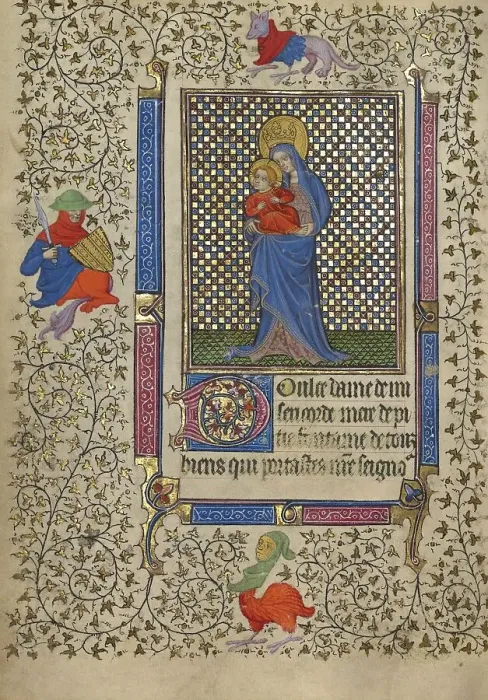 Doulce dame de mi
sericorde mere de pi
tie fontaine de touz
biens qui portastes nr̃e seignoʳ